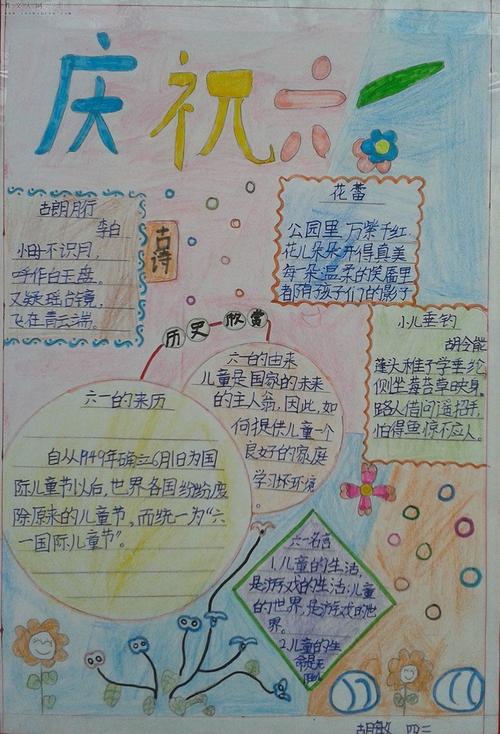 庆祝六一
古朗月行
李白
小时不识月,
呼作白玉盘。
又疑瑶台镜,
飞在青云端。
古诗
花蕾
公园里 万紫千红,
花儿朵朵开得真美
每一朵温柔的笑魇里
都陪孩子们的影子
小儿垂钓
胡令能
蓬头稚子学垂纶
侧坐莓苔草映身。
路人借问遥招手,
怕得鱼惊不应人。
历史欣赏
六一的由来
儿童是国家的未来
的主人翁,因此,如
何提供儿童一个
良好的家庭
学习坏环境
。
六一的来历
自从1949年确立6月1日为国
际儿童节以后,世界各国纷纷废
除原来的儿童节,而统一为“六
一国际儿童节”。
六一名言
1.儿童的生活,
是游戏的生活;儿童
的世界,是游戏的世
界。
2.儿童的生
命是无
胡敏 四二